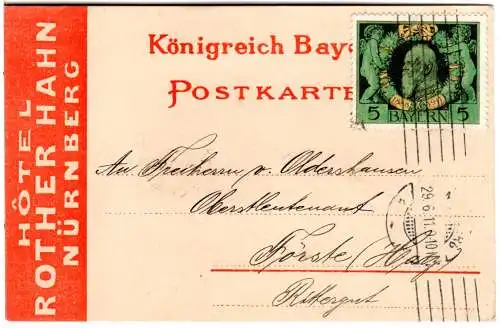 HÔTEL
ROTHER HAHN
NÜRNBERG
Königreich Baye
POSTKARTE
5 BAYERN 5
An Freiherrn v. Oldershausen
Oberstleutenant
Förste (Harz)
Rittergut
29.6.11.